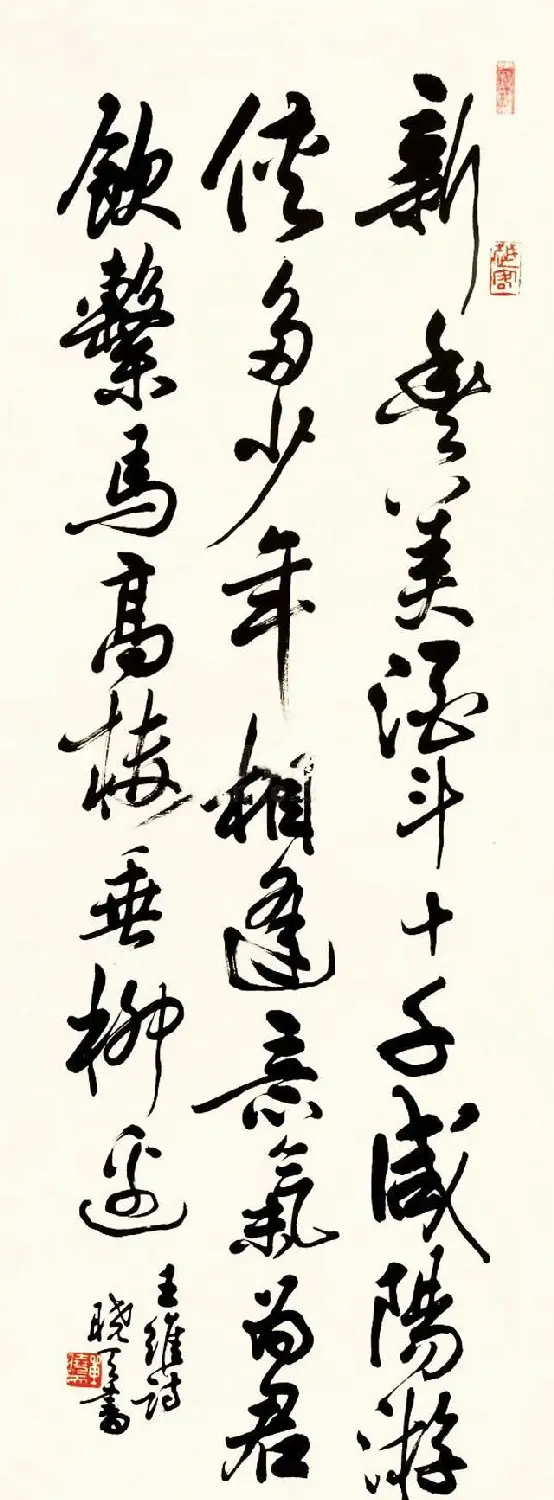 新豐美酒斗十千咸陽游
俠多少年相逢意氣為君
飲繫馬高樓垂柳邊
王維詩
曉天書